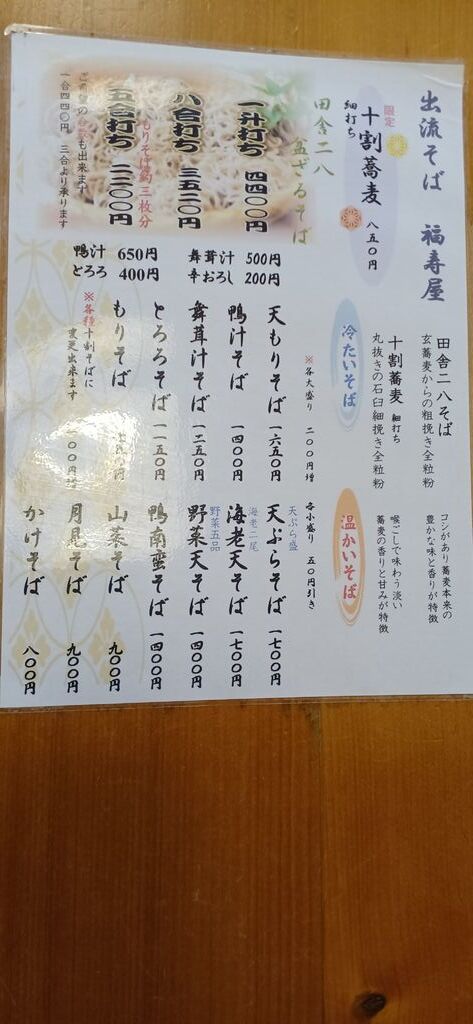 出流そば 福寿屋
田舎二八そば
玄蕎麦からの粗挽き全粒粉
コシがあり蕎麦本来の
豊かな味と香りが特徴
十割蕎麦 細打ち
丸抜きの石臼細挽き全粒粉
喉ごしで味わう淡い
蕎麦の香りと甘みが特徴
限定
十割蕎麦 八五〇円
細打ち
田舎二八
盆ざるそば
一升打ち 四四〇〇円
八合打ち 三五二〇円
もりそば約三枚分
五合打ち 二二〇〇円
も出来ます
一合四四〇円 三合より承ります
舞茸汁 500円
辛おろし 200円
鴨汁 650円
とろろ 400円
冷たいそば
※各大盛り 二〇〇円増
天もりそば 一六五〇円
鴨汁そば 一四〇〇円
舞茸汁そば 一二五〇円
とろろそば 一一五〇円
もりそば
※各種十割そばに
変更出来ます
温かいそば
各小盛り 五〇円引き
天ぷら盛
天ぷらそば 一七〇〇円
海老二尾
海老天そば 一七〇〇円
野菜五品
野菜天そば 一四〇〇円
鴨南蛮そば 一四〇〇円
山菜そば 九〇〇円
月見そば 九〇〇円
かけそば 八〇〇円